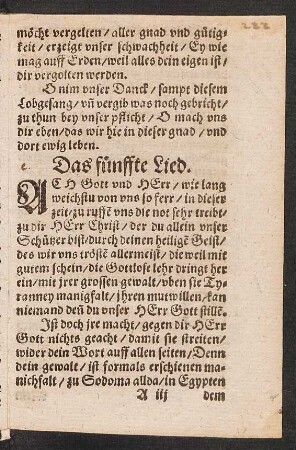 222
möcht vergelten / aller gnad vnd gütig-
keit / erzeigt vnser schwachheit / Ey wie
mag auff Erden / weil alles dein eigen ist /
dir vergolten werden.
O nim vnser Danck / sampt diesem
Lobgesang / vñ vergib was noch gebricht /
zu thun bey vnser pflicht / O mach vns
dir eben / das wir hie in dieser gnad / vnd
dort ewig leben.
Das fünffte Lied.
ACH Gott vnd HErr / wie lang
weichstu von vns so ferr / in dieser
zeit / zu ruffẽ vns die not sehr treibt /
zu dir HErr Christ / der du allein vnser
Schützer bist / durch deinen heiligẽ Geist /
des wir vns tröstẽ allermeist / die weil mit
gutem schein / die Gottlose lehr dringt her
ein / mit jrer grossen gewalt / vben sie Ty-
ranney manigfalt / jhren mutwillen / kan
niemand deñ du vnser HErr Gott stillẽ.
Ist doch jre macht / gegen dir HErr
Gott nichts geacht / damit sie streiten /
wider dein Wort auff allen seiten / Denn
dein gewalt / ist formals erschienen ma-
nichfalt / zu Sodoma allda / in Egypten
A iij dem